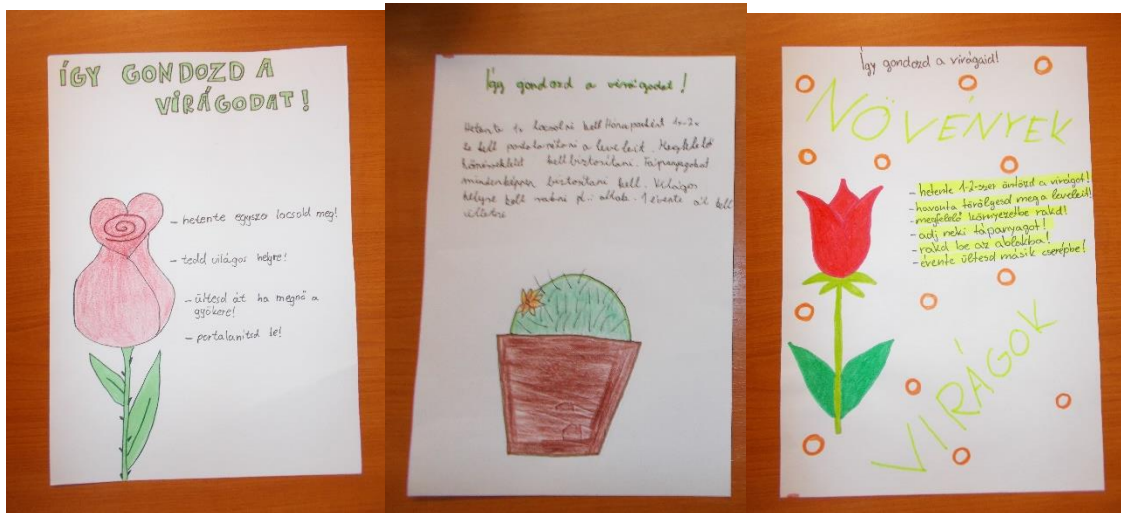 ÍGY GONDOZD A
VIRÁGODAT!
- hetente egyszer locsold meg!
- tedd világos helyre!
- ültesd át ha megnő a
gyökere!
- portalanítsd le!
Így gondozd a virágodat!
Hetente 1x locsolni kell Hónaponként 1x-2x
le kell portalanítani a leveleit. Megfelelő
környezetet kell biztosítani. Tápanyagokat
mindenképpen biztosítani kell. Világos
helyre kell rakni pl.: ablak. 1 évente át kell
ültetni
Így gondozd a virágaid!
NÖVÉNYEK
- hetente 1-2-szer öntözd a virágot!
- havonta törölgesd meg a leveleid!
- megfelelő környezetbe rakd!
- adj neki tápanyagot!
- rakd be az ablakba!
- évente ültesd másik cserépbe!
VIRÁGOK